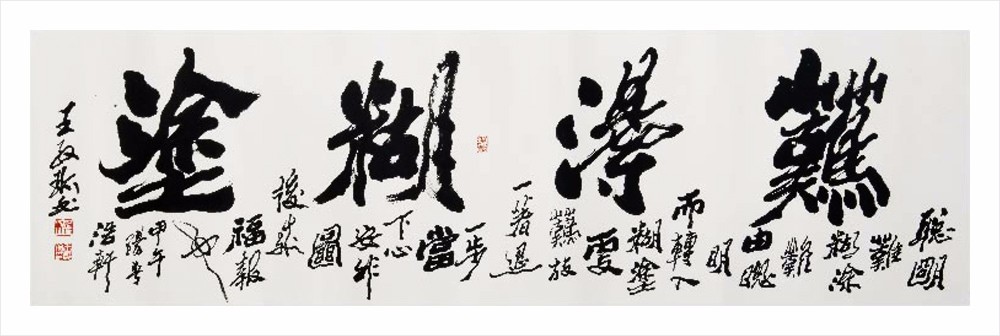 難得糊塗
聰明
難
糊涂
難
由聰
明
而轉入
糊塗
更
難放
一著退
一步
當
下心
安非
圖
後來
福報
也
甲午
浩軒
王政